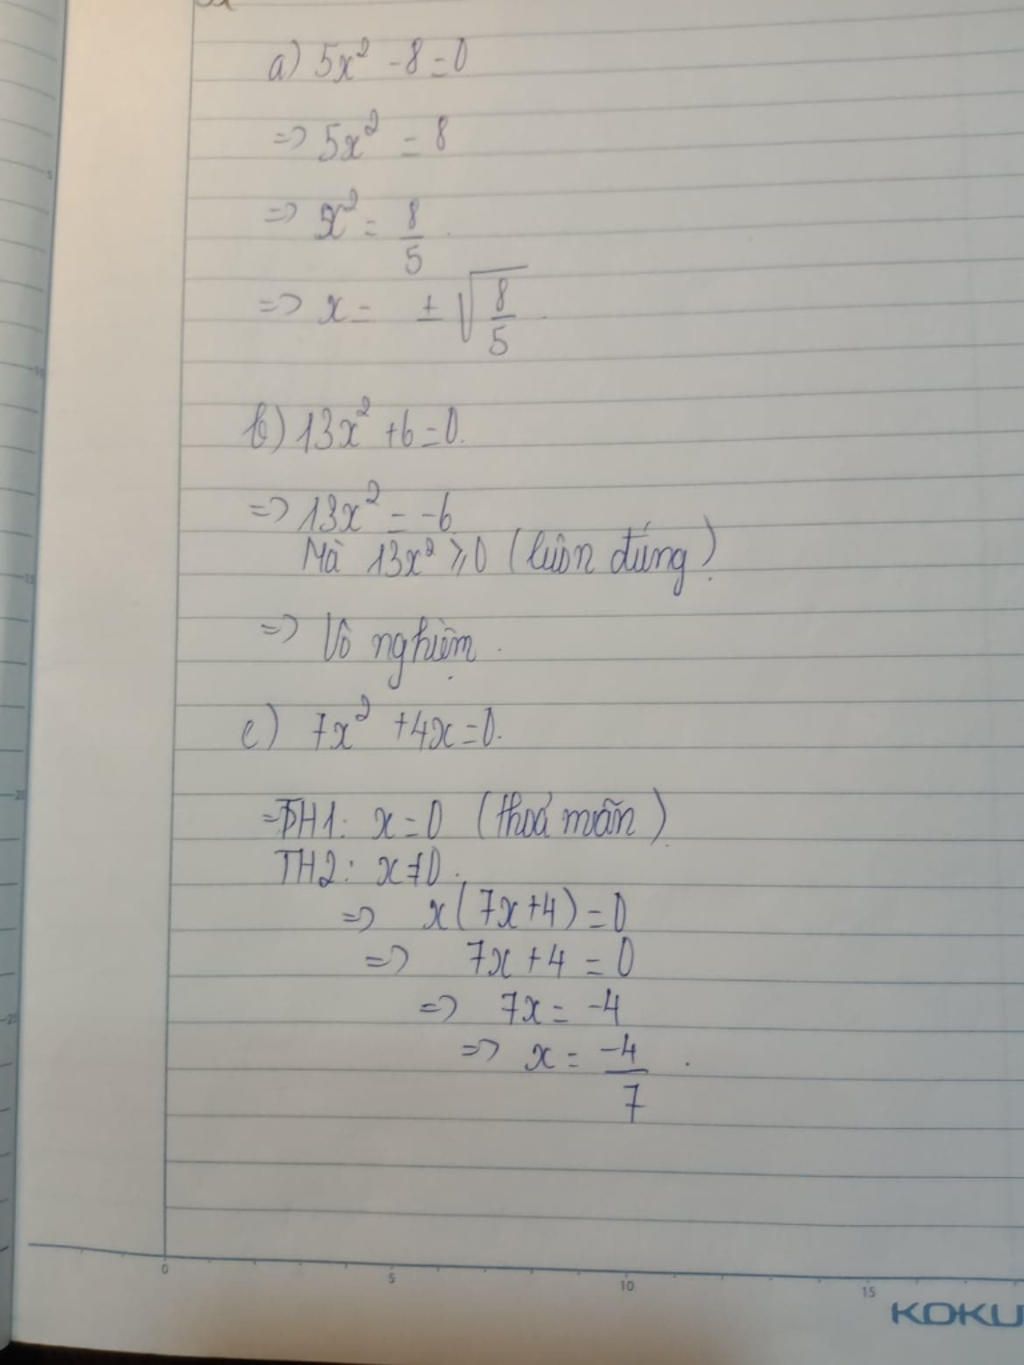 a) 5x² - 8 = 0
=> 5x² = 8
=> x² = 8/5.
=> x = ± √(8/5).
b) 13x² + 6 = 0.
=> 13x² = -6
Mà 13x² ⩾ 0 (luôn đúng).
=> Vô nghiệm.
c) 7x² + 4x = 0.
=> TH1: x = 0 (thoả mãn).
TH2: x ≠ 0.
=> x(7x+4) = 0
=> 7x + 4 = 0
=> 7x = -4
=> x = -4/7.
5
10
15
20
25
0 5 10 15
KOKU